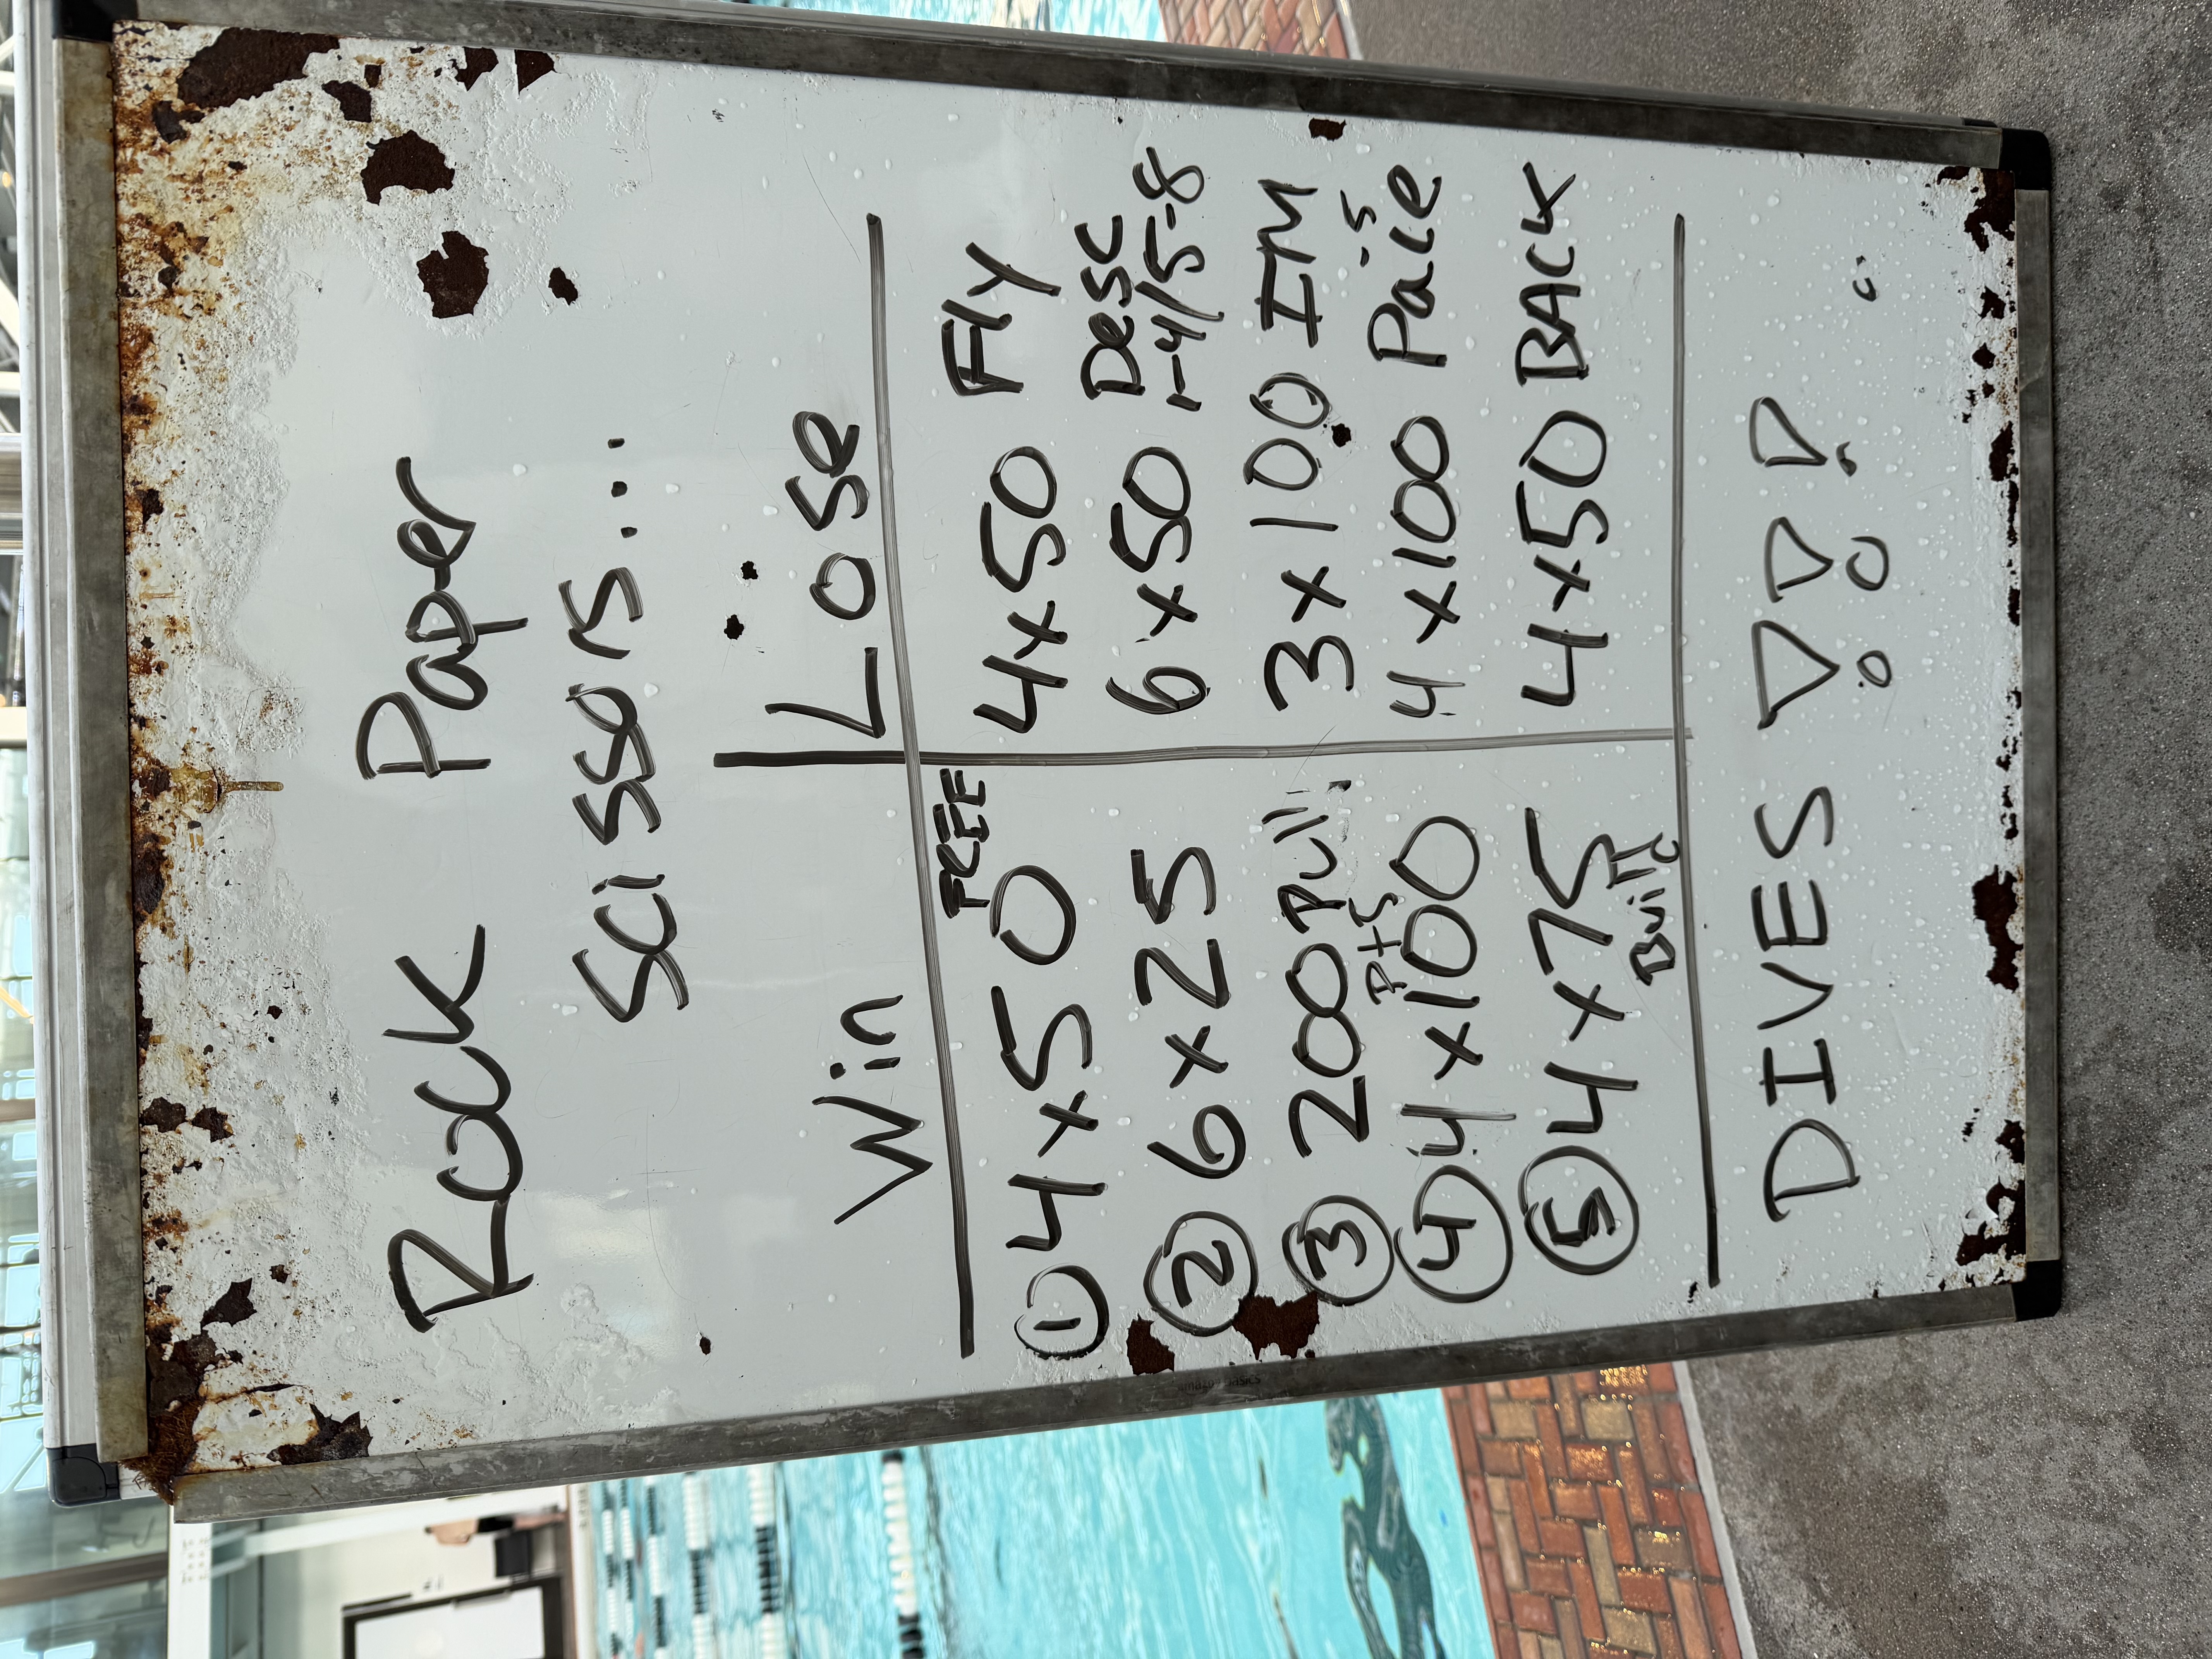 Rock Paper
Scissors...
Win Lose
① 4x50 FREE 4x50 Fly
② 6x25 6x50 Desc 1-4/5-8
③ 200 Pull 3x100 IM
④ 4x100 P+S 4x100 Pace -5
⑤ 4x75 Build 4x50 BACK
DIVES
amazonbasics